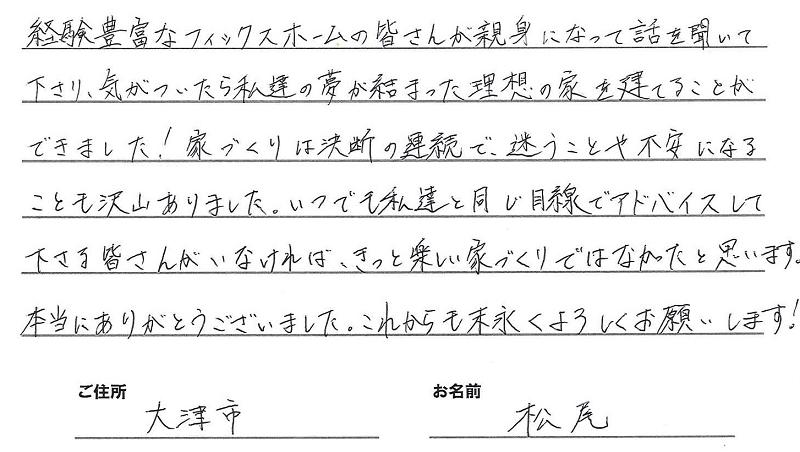 経験豊富なフィックスホームの皆さんが親身になって話を聞いて
下さり、気がついたら私達の夢が結まった理想の家を建てることが
できました！家づくりは決断の連続で、迷うことや不安になる
ことも沢山ありました。いつでも私達と同じ目線でアドバイスして
下さる皆さんがいなければ、きっと楽しい家づくりではなかたと思います。
本当にありがとうございました。これからも末永くよろしくお願いします！
ご住所 お名前
大津市 松尾